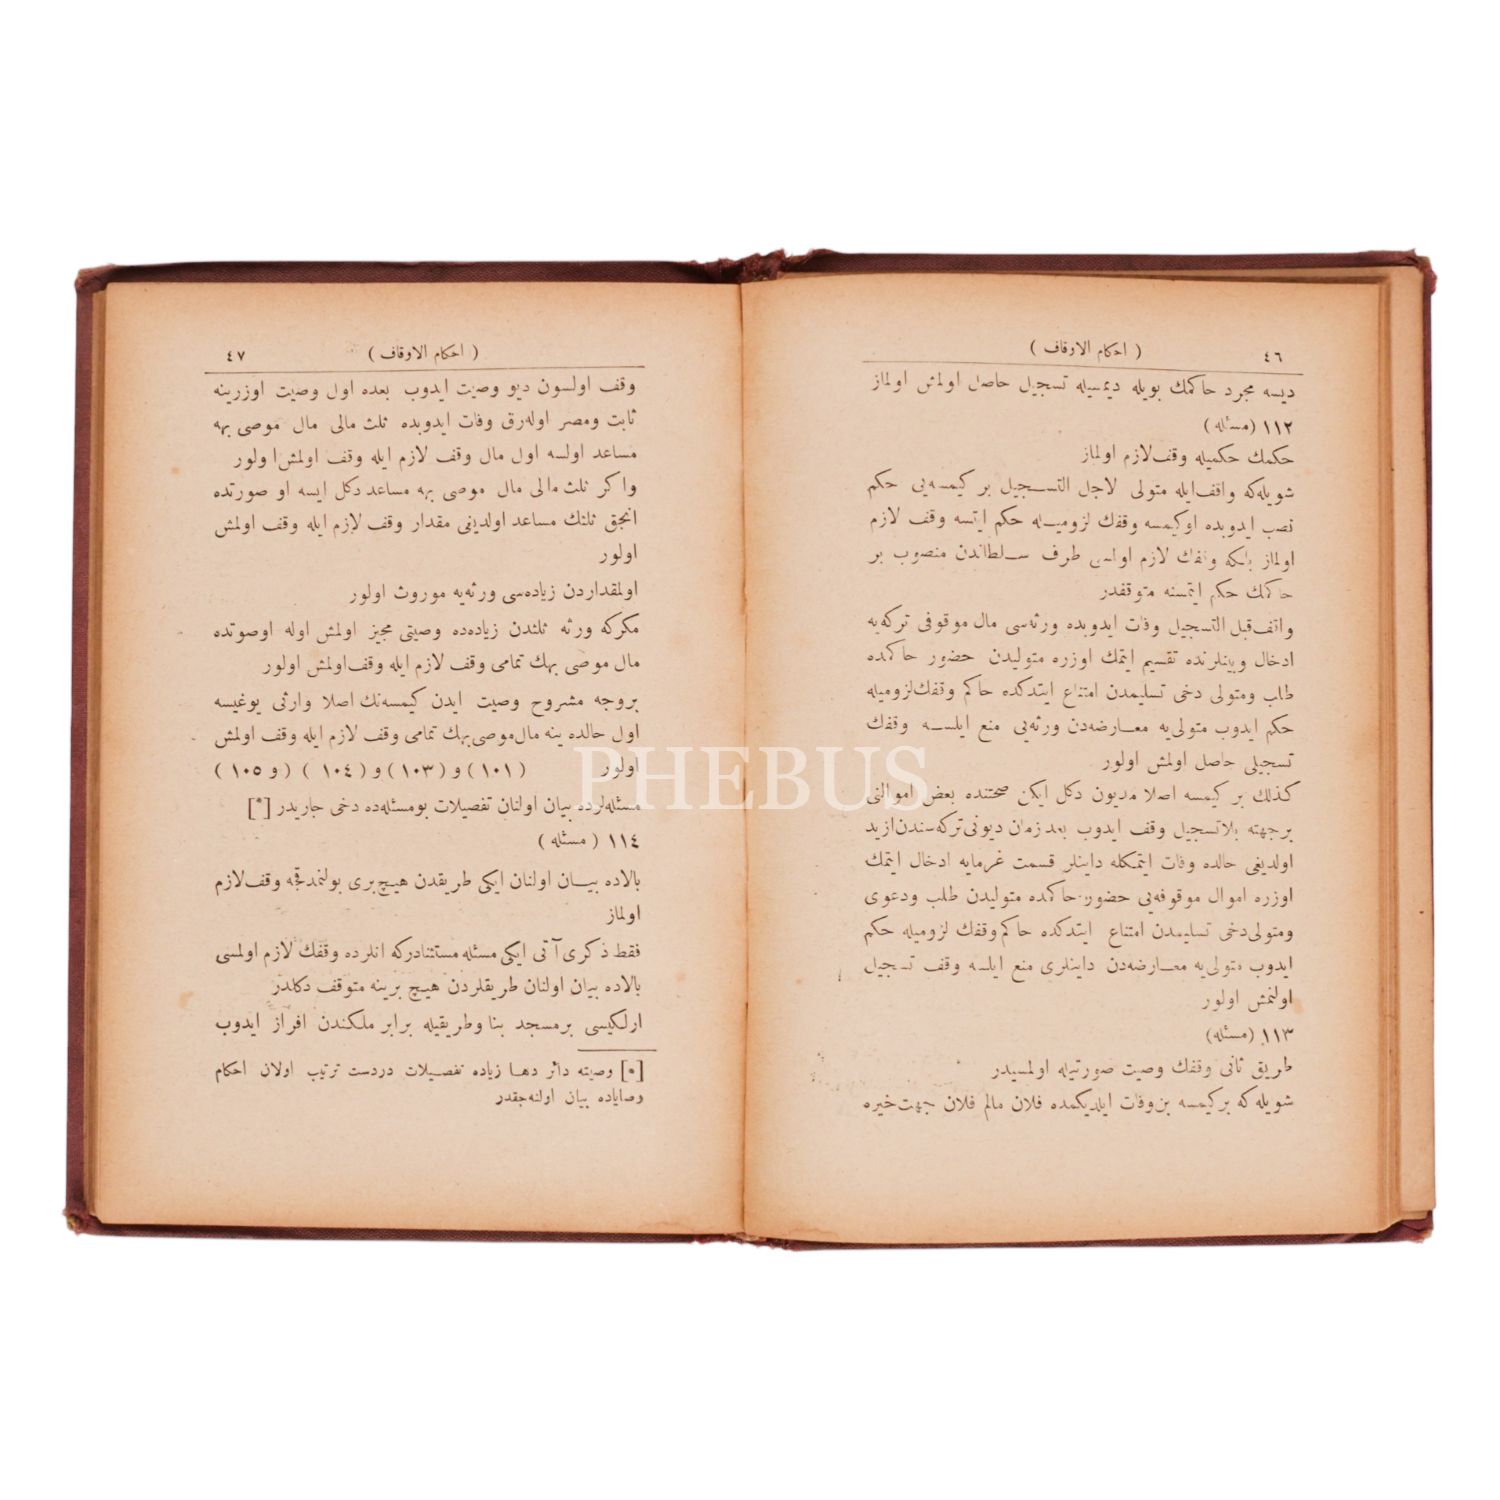 ٤٦
( احكام الاوقاف )
ديسه مجرد حاكمك بويله ديمسيله تسجيل حاصل اولمش اولماز
١١٢ (مسئله)
حكمك حكميله وقف لازم اولماز
شويله كه واقف ايله متولى لاجل التسجيل بر كيمسه يى حكم
نصب ايدوبده اوكيمسه وقفك لزوميله حكم ايتسه وقف لازم
اولماز بلكه وقفك لازم اولمسى طرف سلطاندن منصوب بر
حاكمك حكم ايتمسنه متوقفدر
واقف قبل التسجيل وفات ايدوبده ورثه سى مال موقوفى تركه يه
ادخال وبينلرنده تقسيم ايتمك اوزره متوليدن حضور حاكمده
طلب ومتولى دخى تسليمدن امتناع ايتدكده حاكم وقفك لزوميله
حكم ايدوب متولى يه معارضه دن ورثه يى منع ايلسه وقفك
تسجيلى حاصل اولمش اولور
كذلك بر كيمسه اصلا مديون دكل ايكن صحتنده بعض اموالنى
برجهته بلاتسجيل وقف ايدوب بعد زمان ديونى تركه سندن ازيد
اولديغى حالده وفات ايتمكله داينلر قسمت غرمايه ادخال ايتمك
اوزره اموال موقوفه يى حضور حاكمده متوليدن طلب ودعوى
ومتولى دخى تسليمدن امتناع ايتدكده حاكم وقفك لزوميله حكم
ايدوب متولى يه معارضه دن داينلرى منع ايلسه وقف تسجيل
اولنمش اولور
١١٣ (مسئله)
طريق ثانى وقفك وصيت صورتيله اولمسيدر
شويله كه بر كيمسه بن وفات ايلديكمده فلان مالم فلان جهت خيره
٤٧
( احكام الاوقاف )
وقف اولسون ديو وصيت ايدوب بعده اول وصيت اوزرينه
ثابت ومصر اوله رق وفات ايدوبده ثلث مالى مال موصى به
مساعد اولسه اول مال وقف لازم ايله وقف اولمش اولور
واكر ثلث مالى مال موصى به مساعد دكل ايسه او صورتده
انجق ثلثك مساعد اولديغى مقدار وقف لازم ايله وقف اولمش
اولور
اولمقداردن زياده سى ورثه يه موروث اولور
مكركه ورثه ثلثدن زياده ده وصيتى مجيز اولمش اوله اوصوتده
مال موصى بهك تمامى وقف لازم ايله وقف اولمش اولور
بروجه مشروح وصيت ايدن كيمسه نك اصلا وارثى يوغيسه
اول حالده ينه مال موصى بهك تمامى وقف لازم ايله وقف اولمش
اولور ( ١٠١ ) و ( ١٠٣ ) و ( ١٠٤ ) ( و ١٠٥ )
مسئله لرده بيان اولنان تفصيلات بومسئله ده دخى جاريدر [*]
١١٤ ( مسئله )
بالاده بيان اولنان ايكى طريقدن هيچ برى بولنمدقجه وقف لازم
اولماز
فقط ذكرى آتى ايكى مسئله مستثنادركه انلرده وقفك لازم اولمسى
بالاده بيان اولنان طريقلردن هيچ برينه متوقف دكلدر
ارلكيسى بر مسجد بنا وطريقيله برابر ملكندن افراز ايدوب
[*] وصيته دائر دها زياده تفصيلات دردست ترتيب اولان احكام
وصاياده بيان اولنه جقدر
PHEBUS